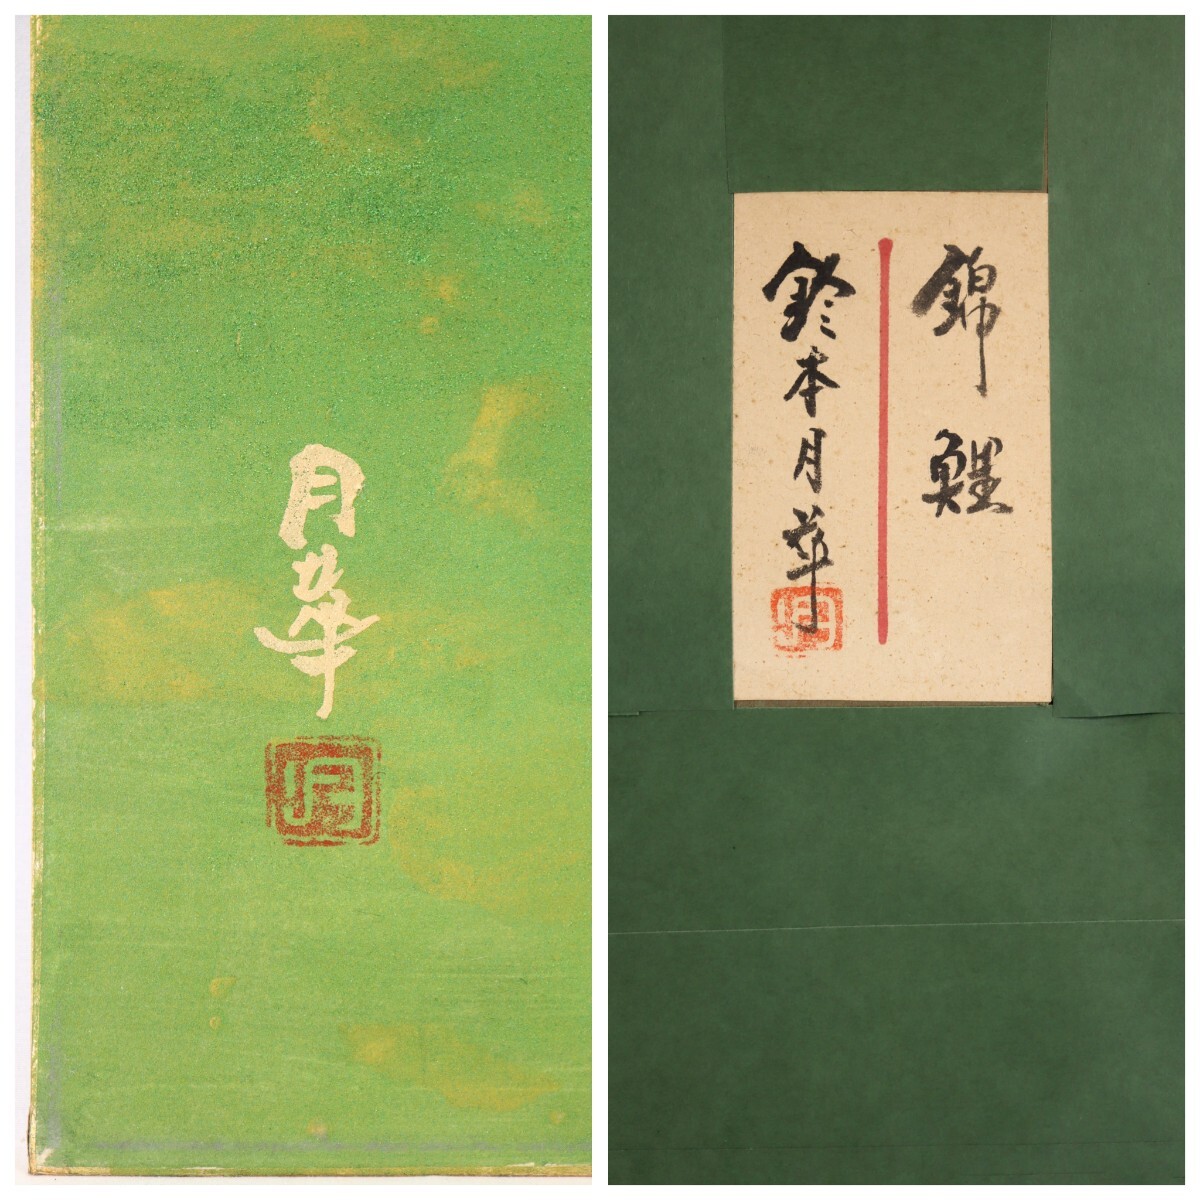 月華
錦鯉
鈴木月華